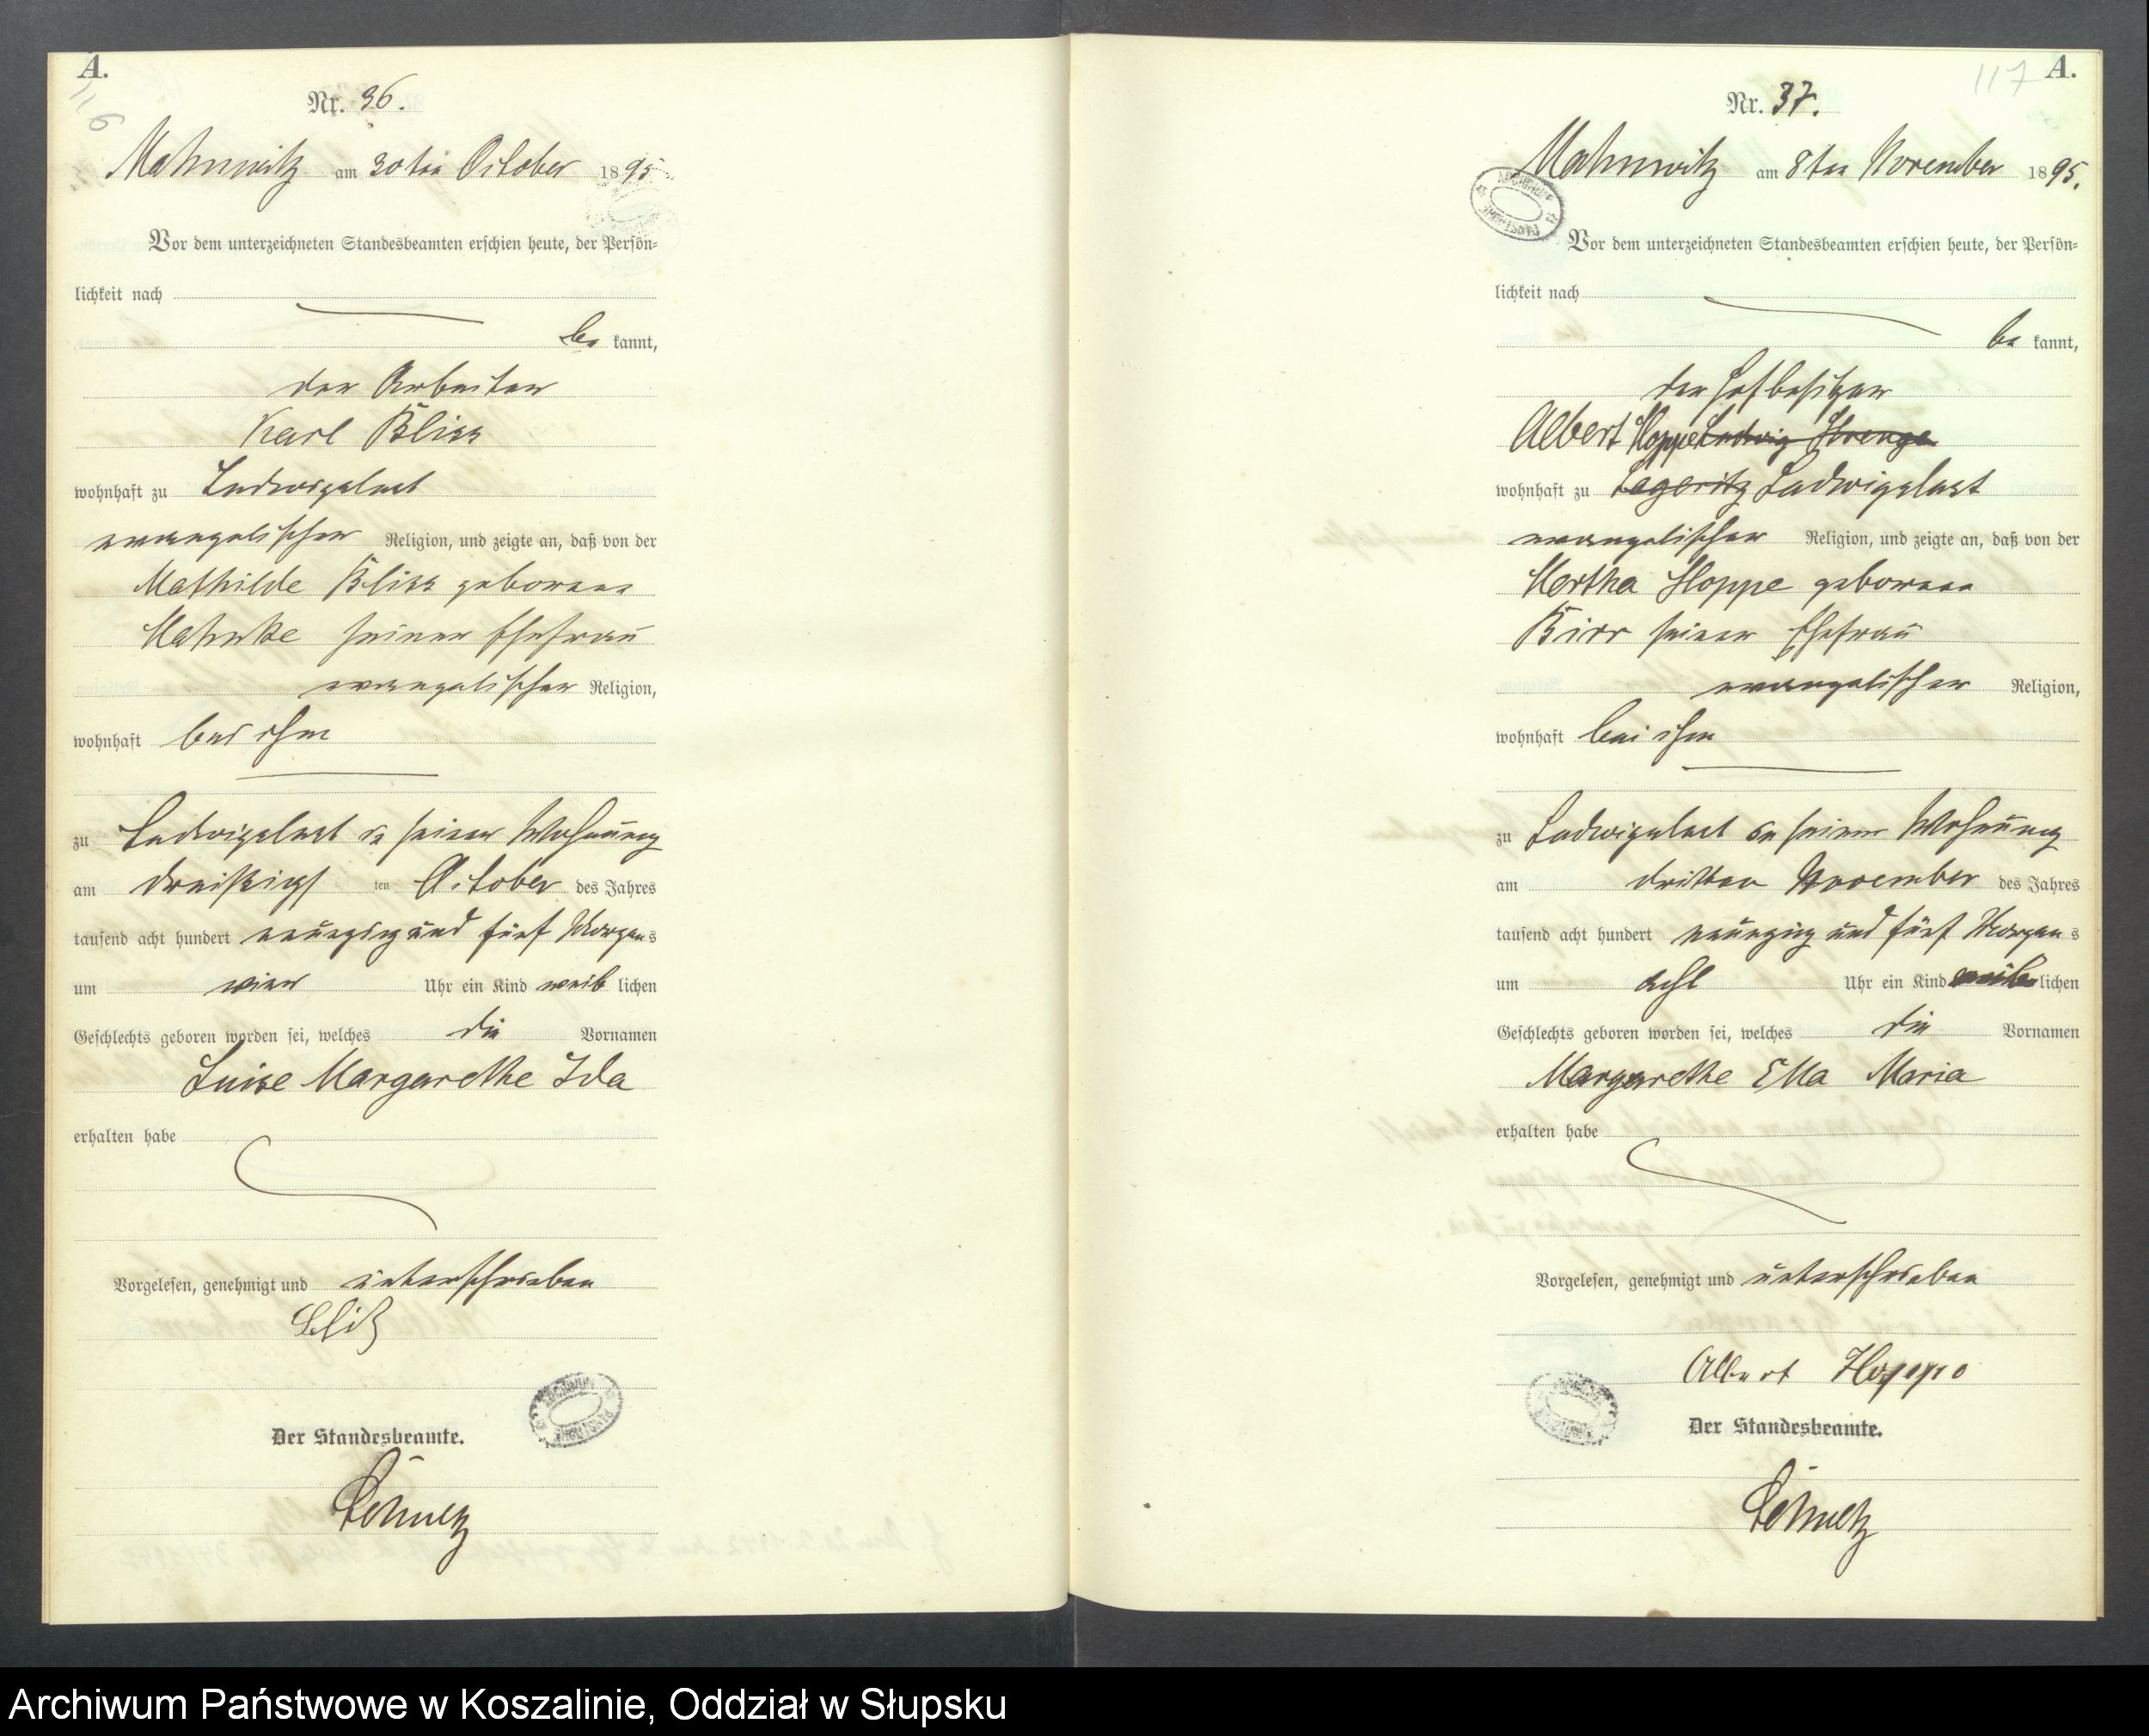 A.
116
Nr. 36.
Mahnwitz am 30ten October 1895.
Vor dem unterzeichneten Standesbeamten erschien heute, der Persön-
lichkeit nach
be kannt,
der Arbeiter
Karl Bliss
wohnhaft zu Ludwigslust
evangelischer Religion, und zeigte an, daß von der
Mathilde Bliss geborene
Mahnke seiner Ehefrau
evangelischer Religion,
wohnhaft bei ihm
zu Ludwigslust in seiner Wohnung
am dreißigsten October des Jahres
tausend acht hundert neunzig und fünf Morgens
um vier Uhr ein Kind weib lichen
Geschlechts geboren worden sei, welches die Vornamen
Luise Margarethe Ida
erhalten habe
Vorgelesen, genehmigt und unterschrieben
Bliß
Der Standesbeamte.
Schultz
117
A.
Nr. 37.
Mahnwitz am 8ten November 1895.
Vor dem unterzeichneten Standesbeamten erschien heute, der Persön-
lichkeit nach
be kannt,
der Hofbesitzer
Albert Hoppe Ludwig
wohnhaft zu Ludwigslust
evangelischer Religion, und zeigte an, daß von der
Hertha Hoppe geborene
Birr seiner Ehefrau
evangelischer Religion,
wohnhaft bei ihm
zu Ludwigslust in seiner Wohnung
am dritten November des Jahres
tausend acht hundert neunzig und fünf Morgens
um acht Uhr ein Kind weib lichen
Geschlechts geboren worden sei, welches die Vornamen
Margarethe Ella Maria
erhalten habe
Vorgelesen, genehmigt und unterschrieben
Albert Hoppe
Der Standesbeamte.
Schultz
Archiwum Państwowe w Koszalinie, Oddział w Słupsku